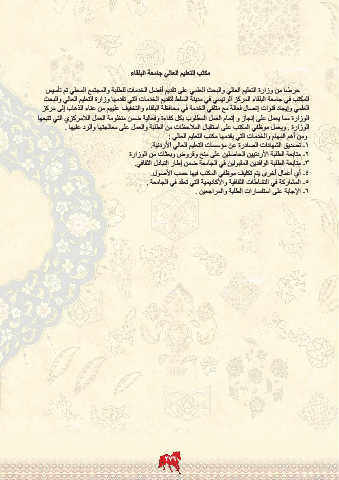 مكتب التعليم العالي جامعة البلقاء
حرصًا من وزارة التعليم العالي والبحث العلمي على تقديم أفضل الخدمات للطلبة والمجتمع المحلي تم تأسيس
المكتب في جامعة البلقاء المركز الرئيسي في مدينة السلط لتقديم الخدمات التي تقدمها وزارة التعليم العالي والبحث
العلمي وإيجاد قنوات إتصال فعالة مع متلقي الخدمة في محافظة البلقاء والتخفيف عليهم من عناء الذهاب إلى مركز
الوزارة مما يعمل على إنجاز و إتمام العمل المطلوب بكل كفاءة وفعالية ضمن منظومة العمل اللامركزي التي تتبعها
الوزارة . ويعمل موظفي المكتب على استقبال الملاحظات من الطلبة والعمل على معالجتها والرد عليها .
ومن أهم المهام والخدمات التي يقدمها مكتب التعليم العالي :
١- تصديق الشهادات الصادرة عن مؤسسات التعليم العالي الأردنية.
٢- متابعة الطلبة الأردنيين الحاصلين على منح وقروض وبعثات من الوزارة
٣- متابعة الطلبة الوافدين المقبولين في الجامعة ضمن إطار التبادل الثقافي.
٤- أي أعمال أخرى يتم تكليف موظفي المكتب فيها حسب الأصول.
٥- المشاركة في النشاطات الثقافية والأكاديمية التي تعقد في الجامعة .
٦- الإجابة على استفسارات الطلبة والمراجعين .